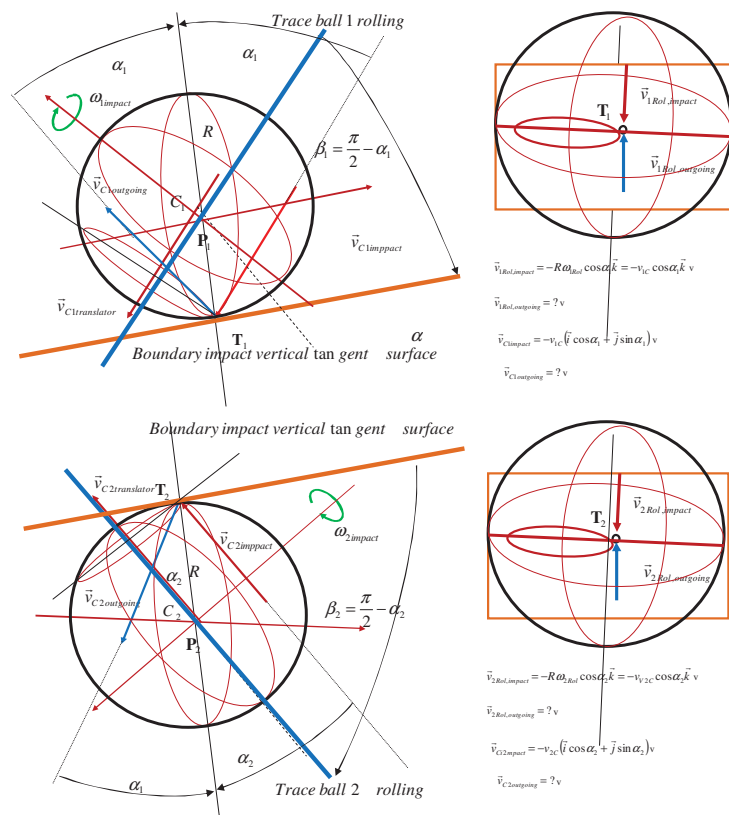 Trace ball 1 rolling
α₁
α₁
ω⃗₁impact
R
β₁ = π/2 − α₁
v⃗C1outgoing
C₁
P₁
v⃗C1imppact
v⃗C1translator
T₁
α
Boundary impact vertical tan gent surface
v⃗1Rol,impact
T₁
v⃗1Rol,outgoing
v⃗1Rol,impact = −Rω1Rol cosα₁k⃗ = −v1C cosα₁k⃗ v
v⃗1Rol,outgoing = ? v
v⃗C1impact = −v1C(i⃗ cosα₁ + j⃗ sinα₁) v
v⃗C1outgoing = ? v
Boundary impact vertical tan gent surface
v⃗C2translator
T₂
v⃗C2imppact
ω⃗2impact
α₂
R
v⃗C2outgoing
C₂
β₂ = π/2 − α₂
P₂
α₁
α₂
Trace ball 2 rolling
v⃗2Rol,impact
T₂
v⃗2Rol,outgoing
v⃗2Rol,impact = −Rω2Rol cosα₂k⃗ = −vV2C cosα₂k⃗ v
v⃗2Rol,outgoing = ? v
v⃗Ci2mpact = −v2C(i⃗ cosα₂ + j⃗ sinα₂) v
v⃗C2outgoing = ? v